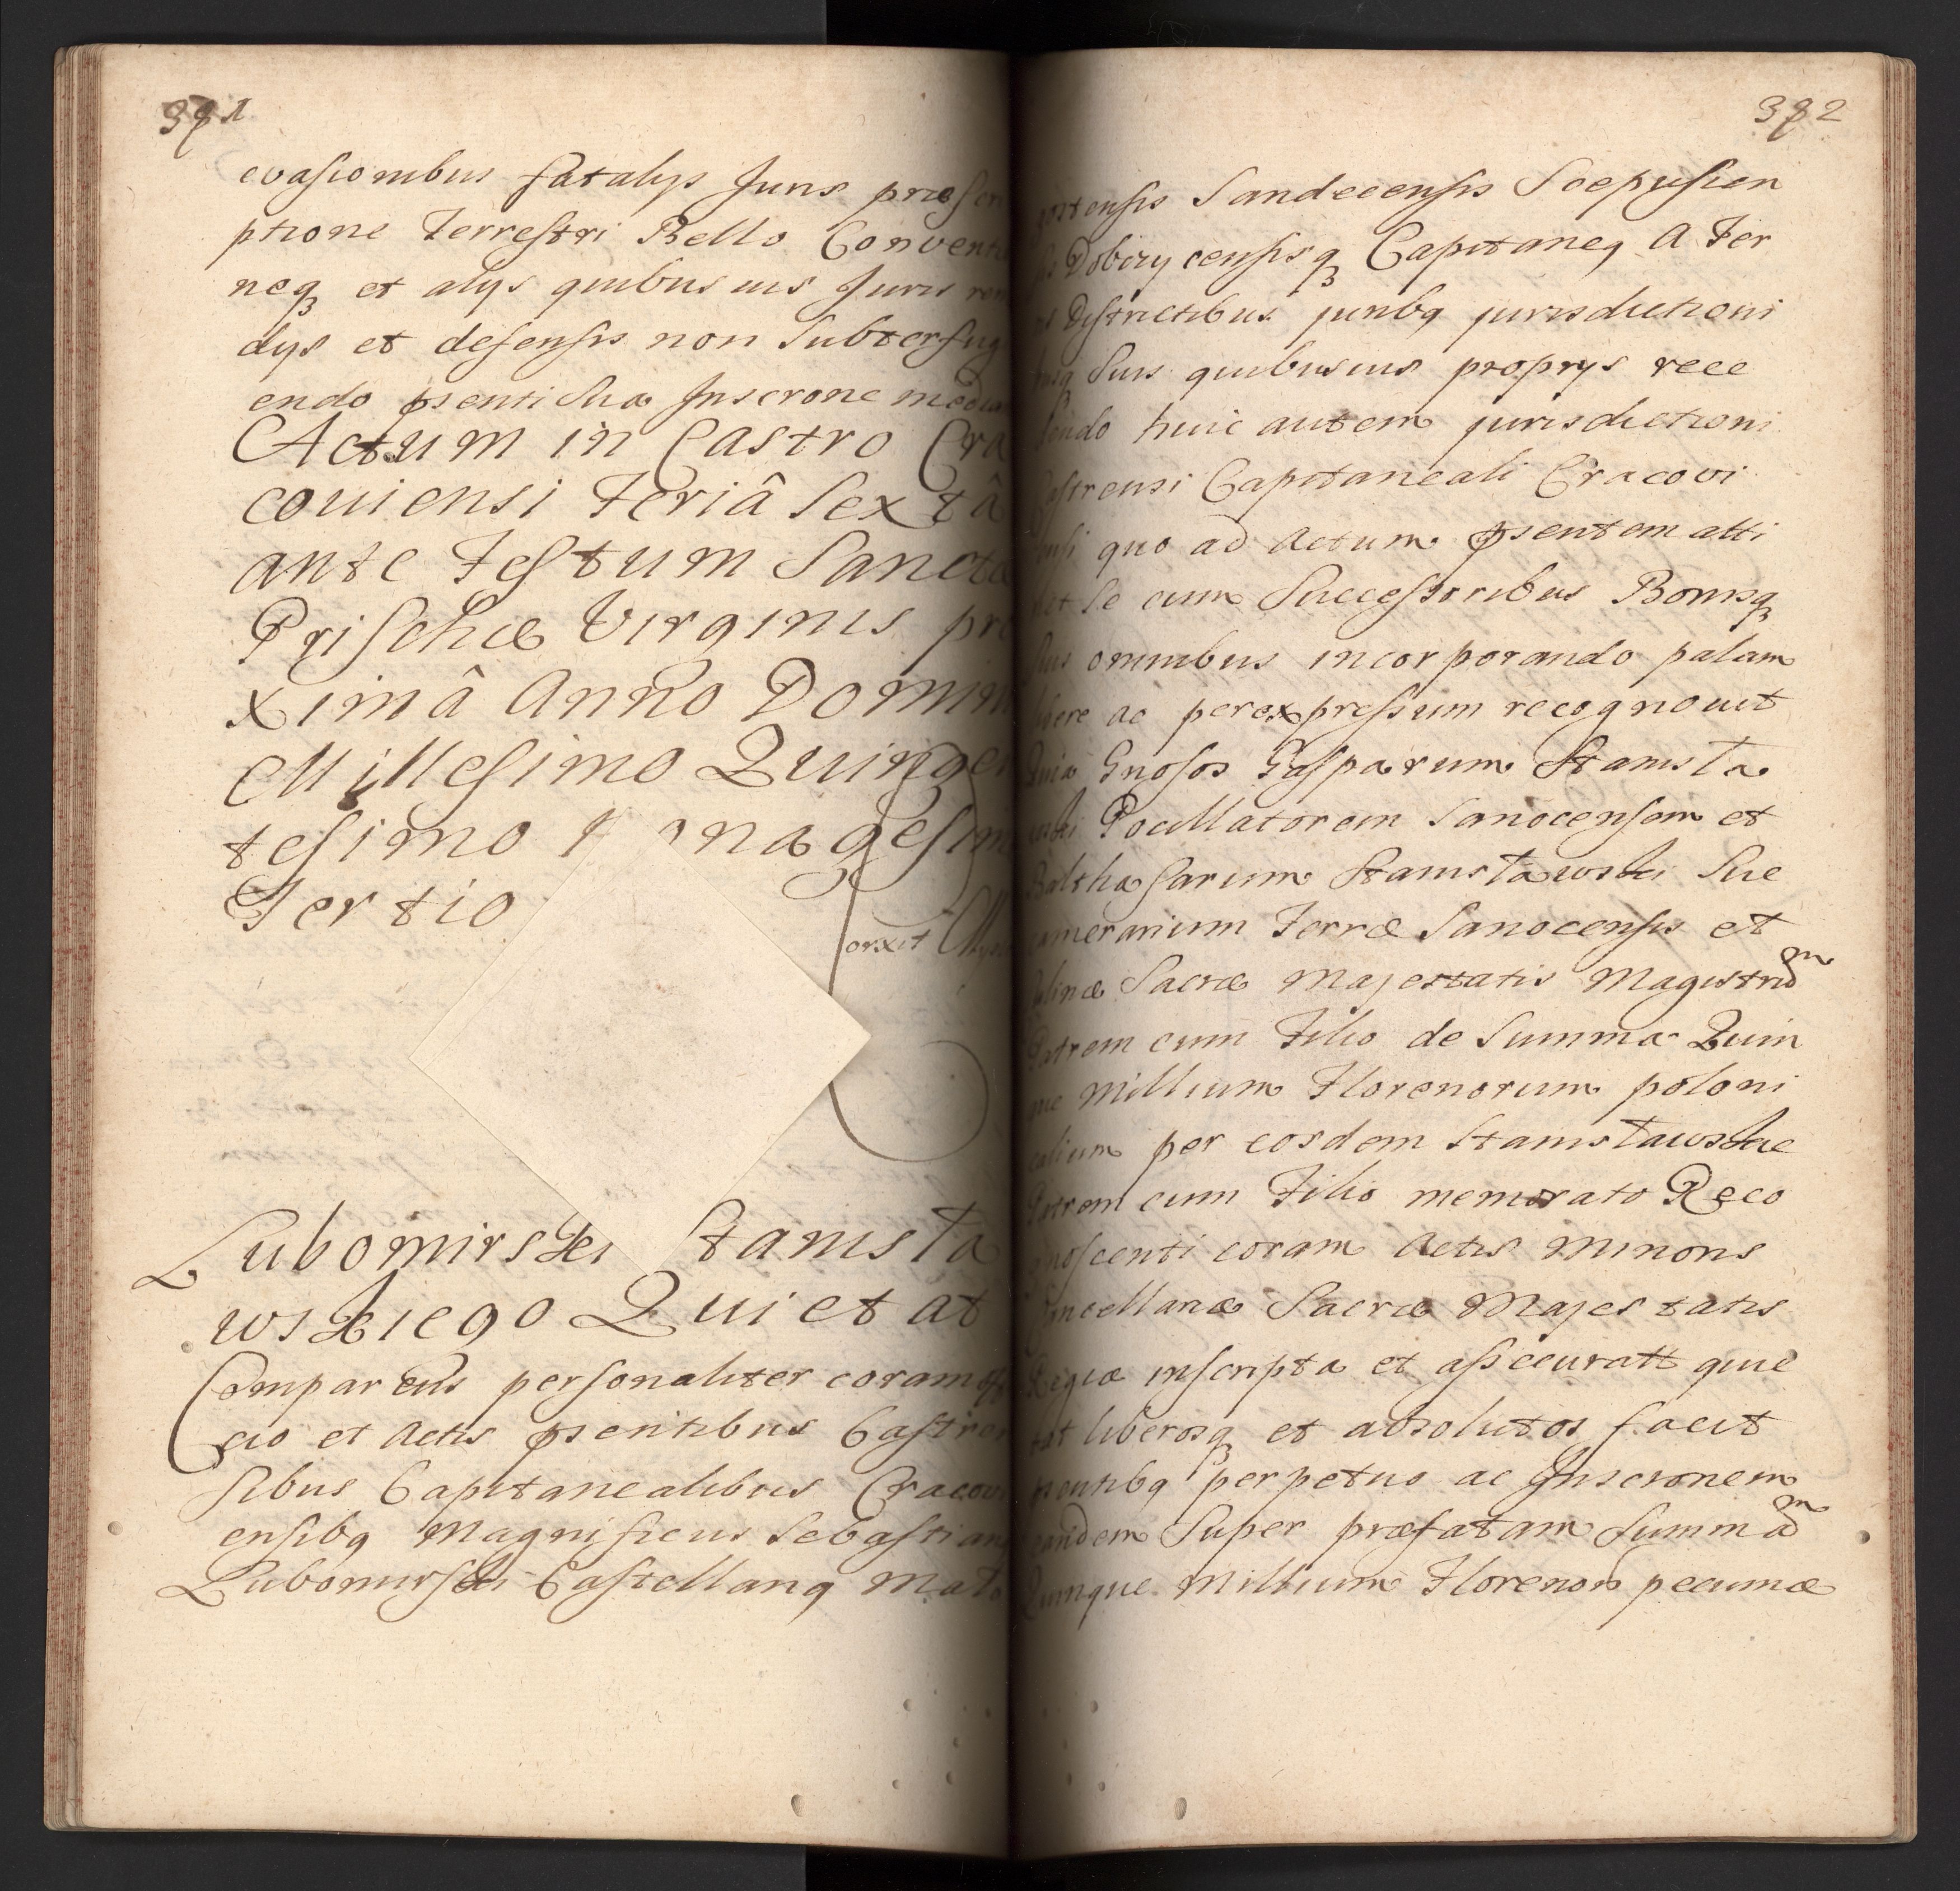 391
evasionibus fatalys Juris præscri
ptione Terrestri Bello Conventi
neq et alys quibusuis Juris rem
dys et defensis non Subterfug
endo pſenti Sua Inscrone media
Actum in Castro Cra
couiensi Feriâ Sextâ
ante Festum Sanctæ
Prischæ Virginis pro
ximâ Anno Domini
Millesimo Quingen
tesimo nagesim
Tertio
orxit
Lubomirski Stanisła
wskiego Quietat
Comparens personaliter coram offi
cio et Actis pſentibus Castren
sibus Capitanealibus Cracovi
ensibq Magnificus Sebastianq
Lubomirski Castellanq Malo
392
Sandecensis Scepusien
Dobczycensisq Capitaneq A Ter
Districtibus junbq jurisdictioni
Suis quibusuis proprys rece
dendo huic autem jurisdictioni
Castrensi Capitaneali Cracovi
ensi quo ad Actum pſentem atti
net Se cum Successoribus Bonisq
suis omnibus incorporando palam
libere ac per expressum recognouit
Quia Gnosos Gasparum Stanisła
wski Pocillatorem Sanocensem et
Balthasarum Stanisławski Suc
camerarium Terræ Sanocensis et
Sacræ Majestatis Magistrũm
Patrem cum Filio de Summa Quin
que Millium Florenorum poloni
calium per eosdem Stanisławskie
Patrem cum Filio memorato Reco
gnoscenti coram Actis Minoris
Cancellariæ Sacræ Majestatis
Regiæ inscripta et assecuratt quie
tat liberosq et absolutos facit
pſentibq perpetuo ac Inscronem
eandem Super præfatam Summãm
Quinque Millium Florenorũ pecuniæ